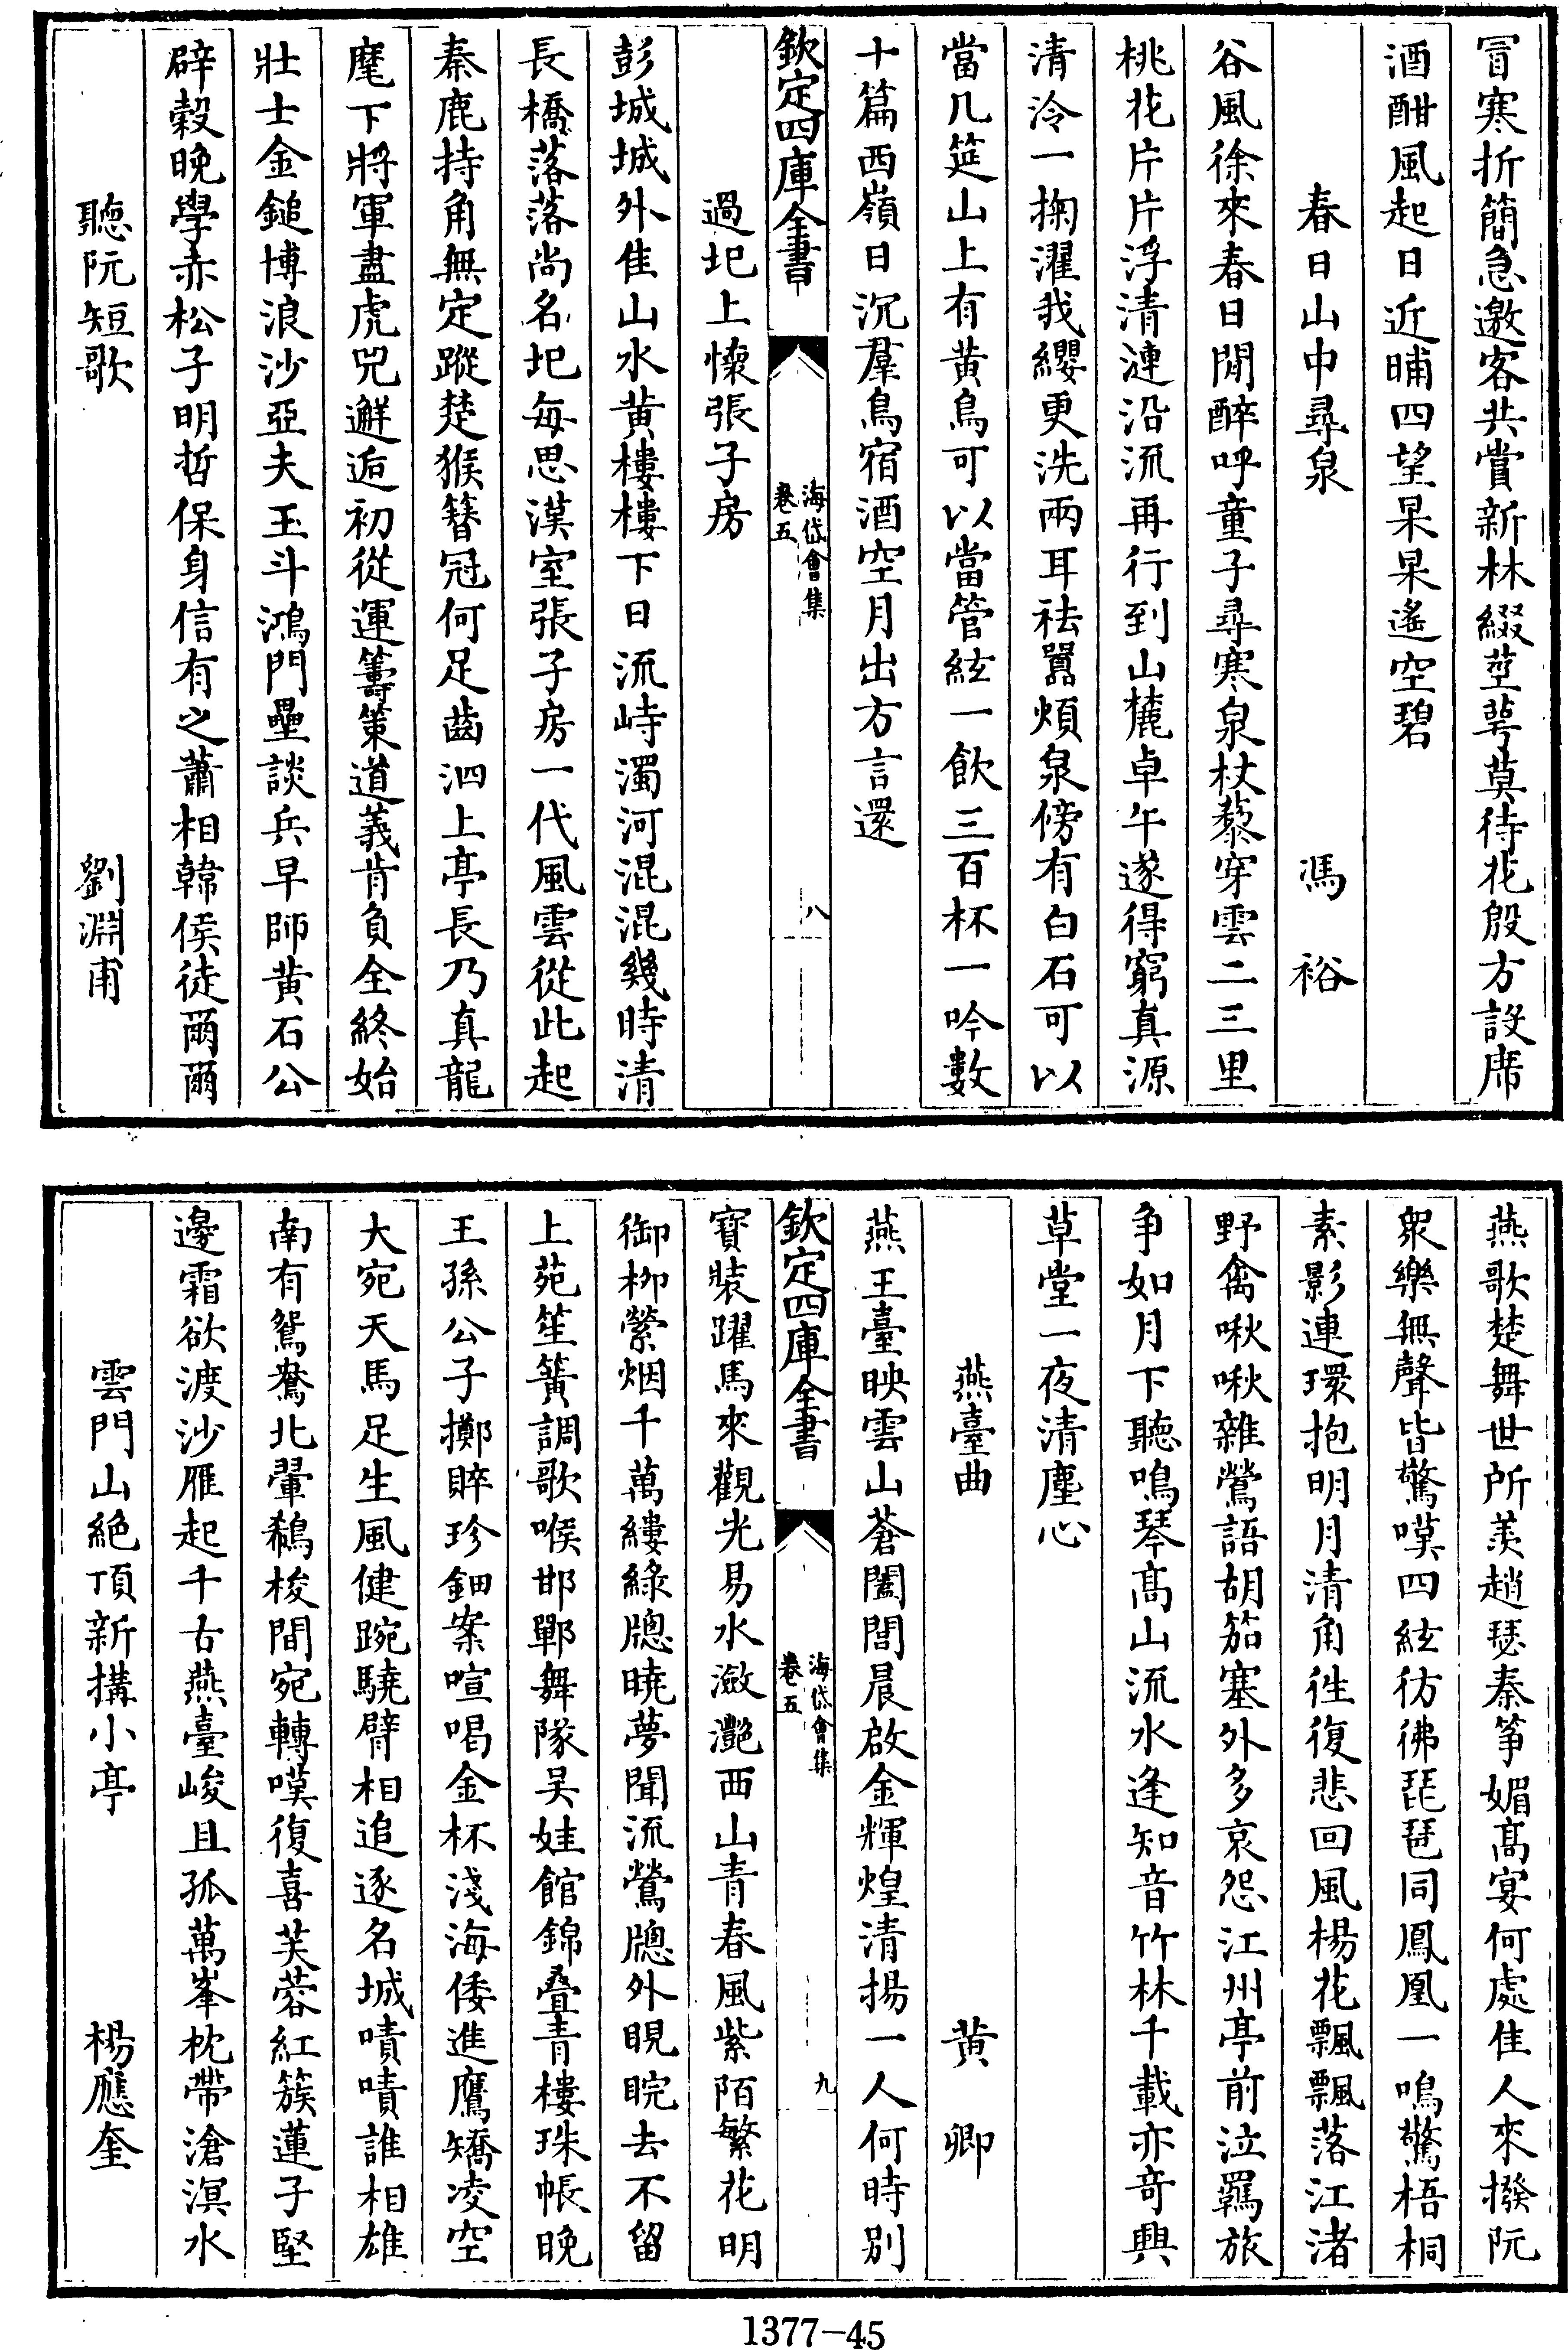 冒寒折簡急邀客共賞新林綴莖萼莫待花殷方設席
酒酣風起日近晡四望杲杲遙空碧
春日山中尋泉　馮裕
谷風徐來春日閒醉呼童子尋寒泉杖藜穿雲二三里
桃花片片浮清漣沿流再行到山麓卓午遂得窮真源
清泠一掬濯我纓更洗兩耳祛囂煩泉傍有白石可以
當几筵山上有黃鳥可以當管絃一飲三百杯一吟數
十篇西嶺日沉羣鳥宿酒空月出方言還
欽定四庫全書　海岱會集　卷五　八
過圯上懷張子房
彭城城外隹山水黃樓樓下日流峙濁河混混幾時清
長橋落落尚名圯每思漢室張子房一代風雲從此起
秦鹿持角無定蹤楚猴簪冠何足齒泗上亭長乃真龍
麾下將軍盡虎兕邂逅初從運籌策道義肯負全終始
壯士金鎚博浪沙亞夫玉斗鴻門壘談兵早師黃石公
辟穀晚學赤松子明哲保身信有之蕭相韓侯徒爾爾
聽阮短歌　劉淵甫
燕歌楚舞世所羨趙瑟秦箏媚髙宴何處隹人來撥阮
衆樂無聲皆驚嘆四絃彷彿琵琶同鳳凰一鳴驚梧桐
素影連環抱明月清角徃復悲回風楊花飄飄落江渚
野禽啾啾雜鶯語胡笳塞外多哀怨江州亭前泣羈旅
争如月下聽鳴琴髙山流水逢知音竹林千載亦竒興
草堂一夜清塵心
燕臺曲　黃卿
燕王臺映雲山蒼闔閭晨啟金輝煌清揚一人何時別
欽定四庫全書　海岱會集　卷五　九
寶裝躍馬來觀光易水瀲灧西山青春風紫陌繁花明
御柳縈烟千萬縷綠牕曉夢聞流鶯牕外睍睆去不留
上苑笙簧調歌喉邯鄲舞隊吴娃館錦疊青樓珠帳晚
王孫公子擲賍珍鈿案喧喝金杯淺海倭進鷹矯凌空
大宛天馬足生風健踠驍臂相追逐名城嘖嘖誰相雄
南有鴛鴦北翬鷸梭間宛轉嘆復喜芙蓉紅簇蓮子堅
邊霜欲渡沙雁起千古燕臺峻且孤萬峯枕帶滄溟水
雲門山絶頂新搆小亭　楊應奎
1377-45